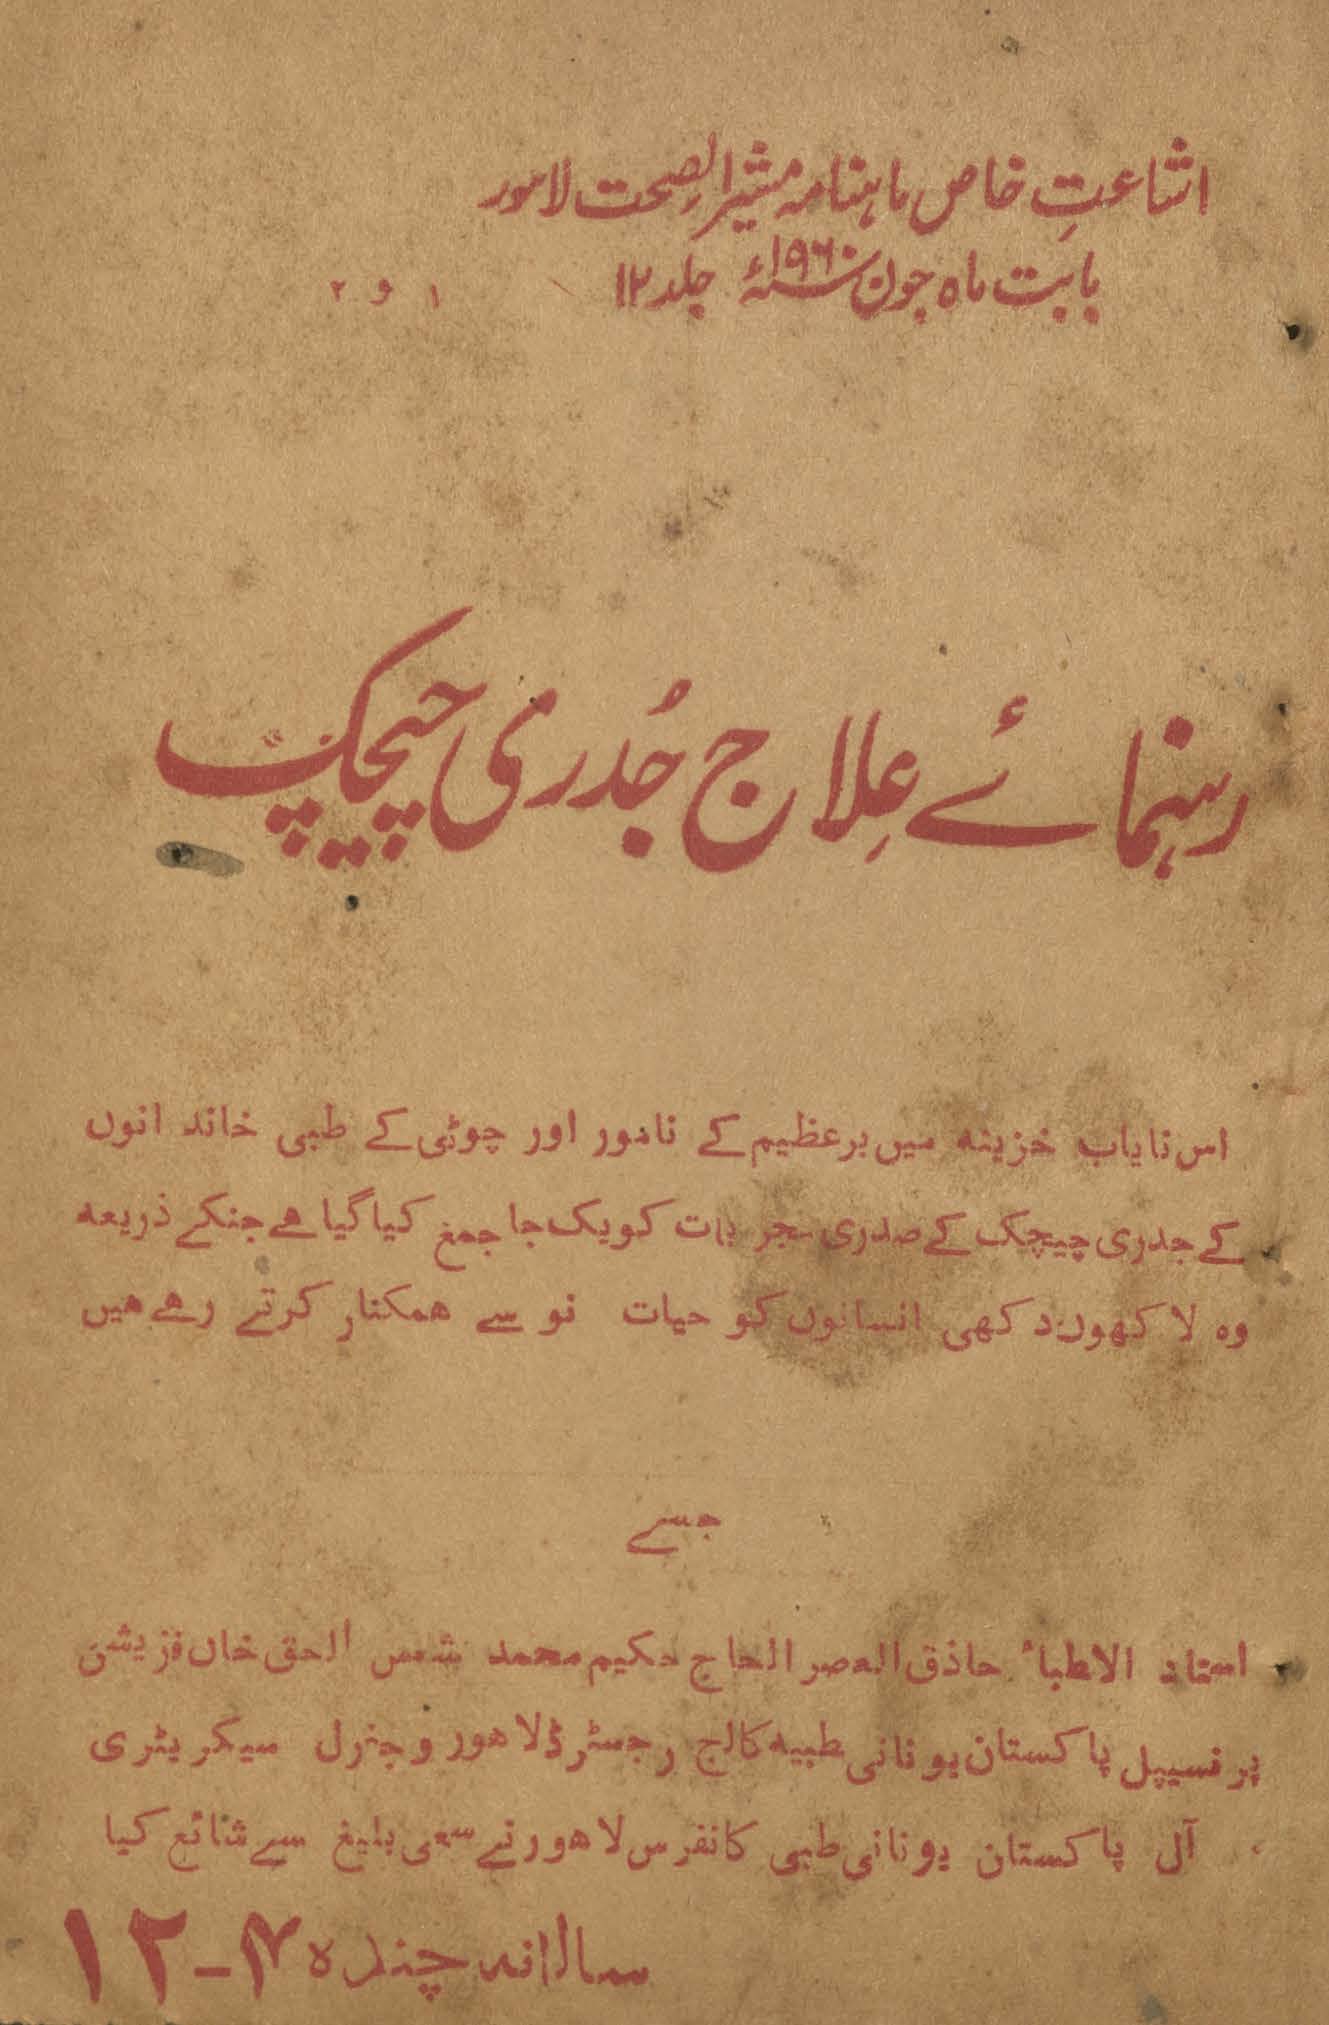 اشاعتِ خاص ماہنامہ مشیر الصحت لاہور
بابت ماہ جون ۱۹۶۰ء جلد ۱۲ ۱ و ۲
رہنمائے عِلاج جُدری چیچک
اس نایاب خزینہ میں برعظیم کے نامور اور چوٹی کے طبی خاندانوں
کے جدری چیچک کے صدری مجربات کو یک جا جمع کیا گیا ہے جنکے ذریعہ
وہ لاکھوں دکھی انسانوں کو حیات نو سے ہمکنار کرتے رہے ہیں
جسے
استاد الاطباء حاذق العصر الحاج حکیم محمد شمس الحق خاں فزیشن
پرنسیپل پاکستان یونانی طبیہ کالج رجسٹرڈ لاہور و جنرل سیکریٹری
آل پاکستان یونانی طبی کانفرس لاہور نے سعی بلیغ سے شائع کیا
سالانہ چندہ ۴-۱۲